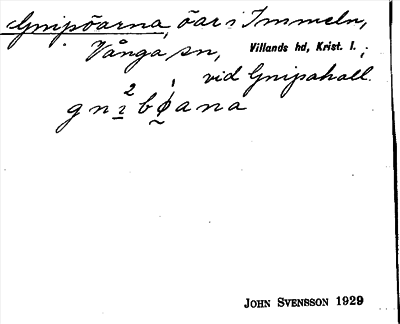 Gnipöarna, öar i Immeln,
Vånga sn, Villands hd, Krist. l.;
vid Gnipahall.
gnı̱²bǿ̰ana
JOHN SVENSSON 1929